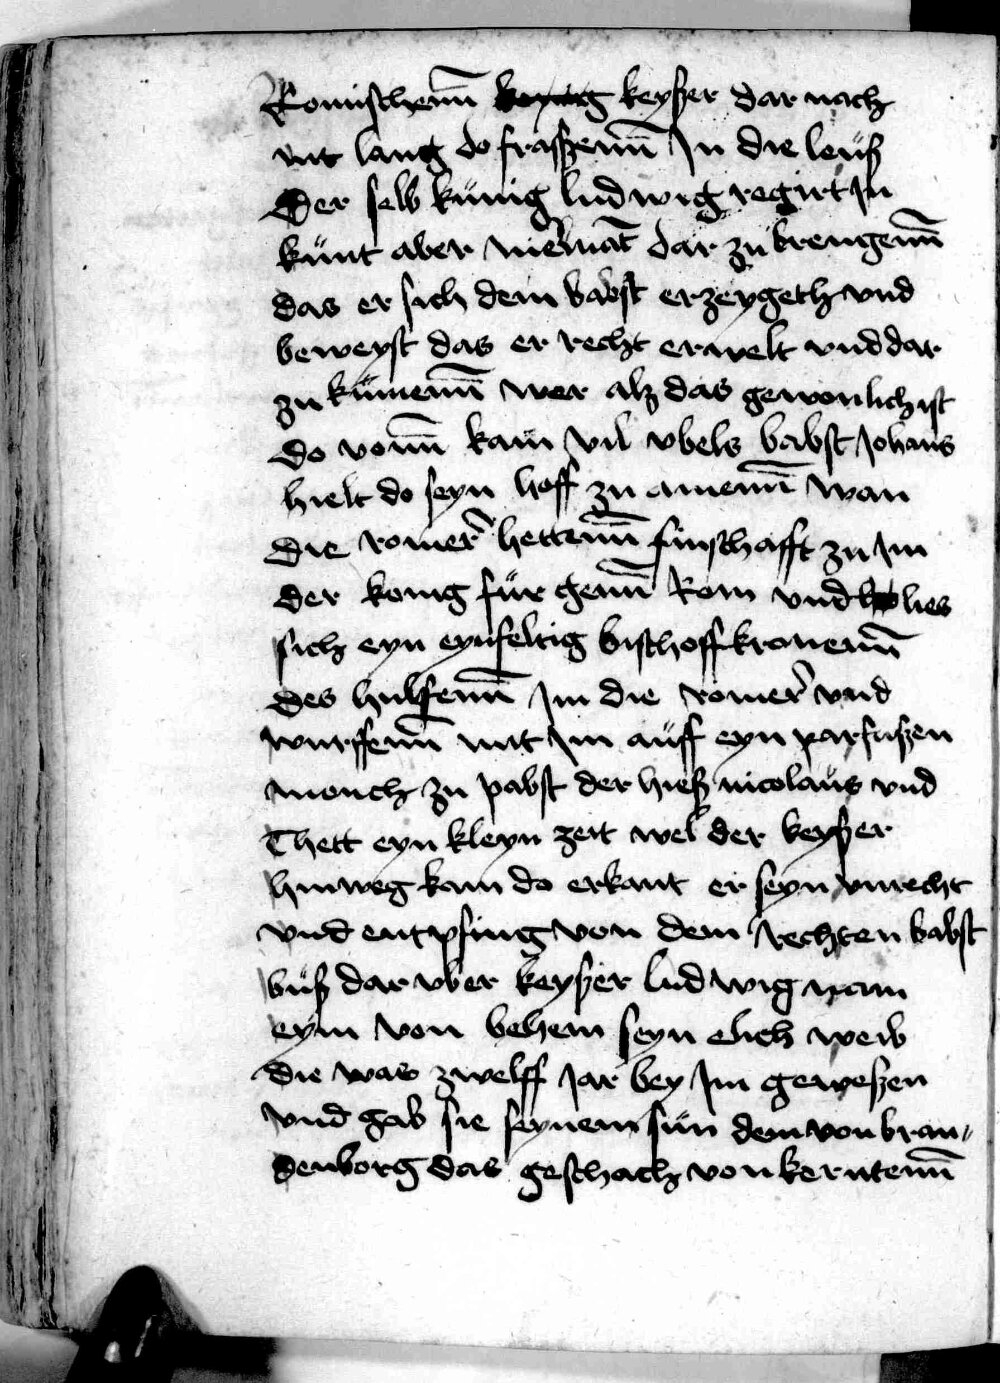 Romischenn̄ keyßer dar nach
nit lang do fraßenn̄ In die leuß
Der selb künig lud wig regirt In
künt aber niemāt dar zu brengenn̄
das er sich dem babst erzeygeth vnd
beweyst das er recht erwelt vnd dar
zu kümenn̄ wer alß das gewonlich ist
do vonn̄ kam vil vbels babst Johans
hielt do seyn hoff zu auienn̄ wan
die romer hettenn̄ fintschafft zu Im
der konig für genn̄ Rom vnd lies
sich eyn eynfeltig bischoff kronenn̄
des hulffenn̄ Im die romer vnd
wurffenn̄ mit Im auff eyn parfußen
monch zu pabst der hieß nicolaus vnd
Thett eyn kleyn zeit wel der keyßer
hinweg kam do erkant er seyn vnrecht
vnd entpfing von dem rechten babst
buß dar vber keyßer lud wig nam
eym von behem seyn elich weib
die was zwelff Jar bey Im geweßen
vnd gab sie seynem sün dem von bran/
denborg das geschach von kerntenn̄